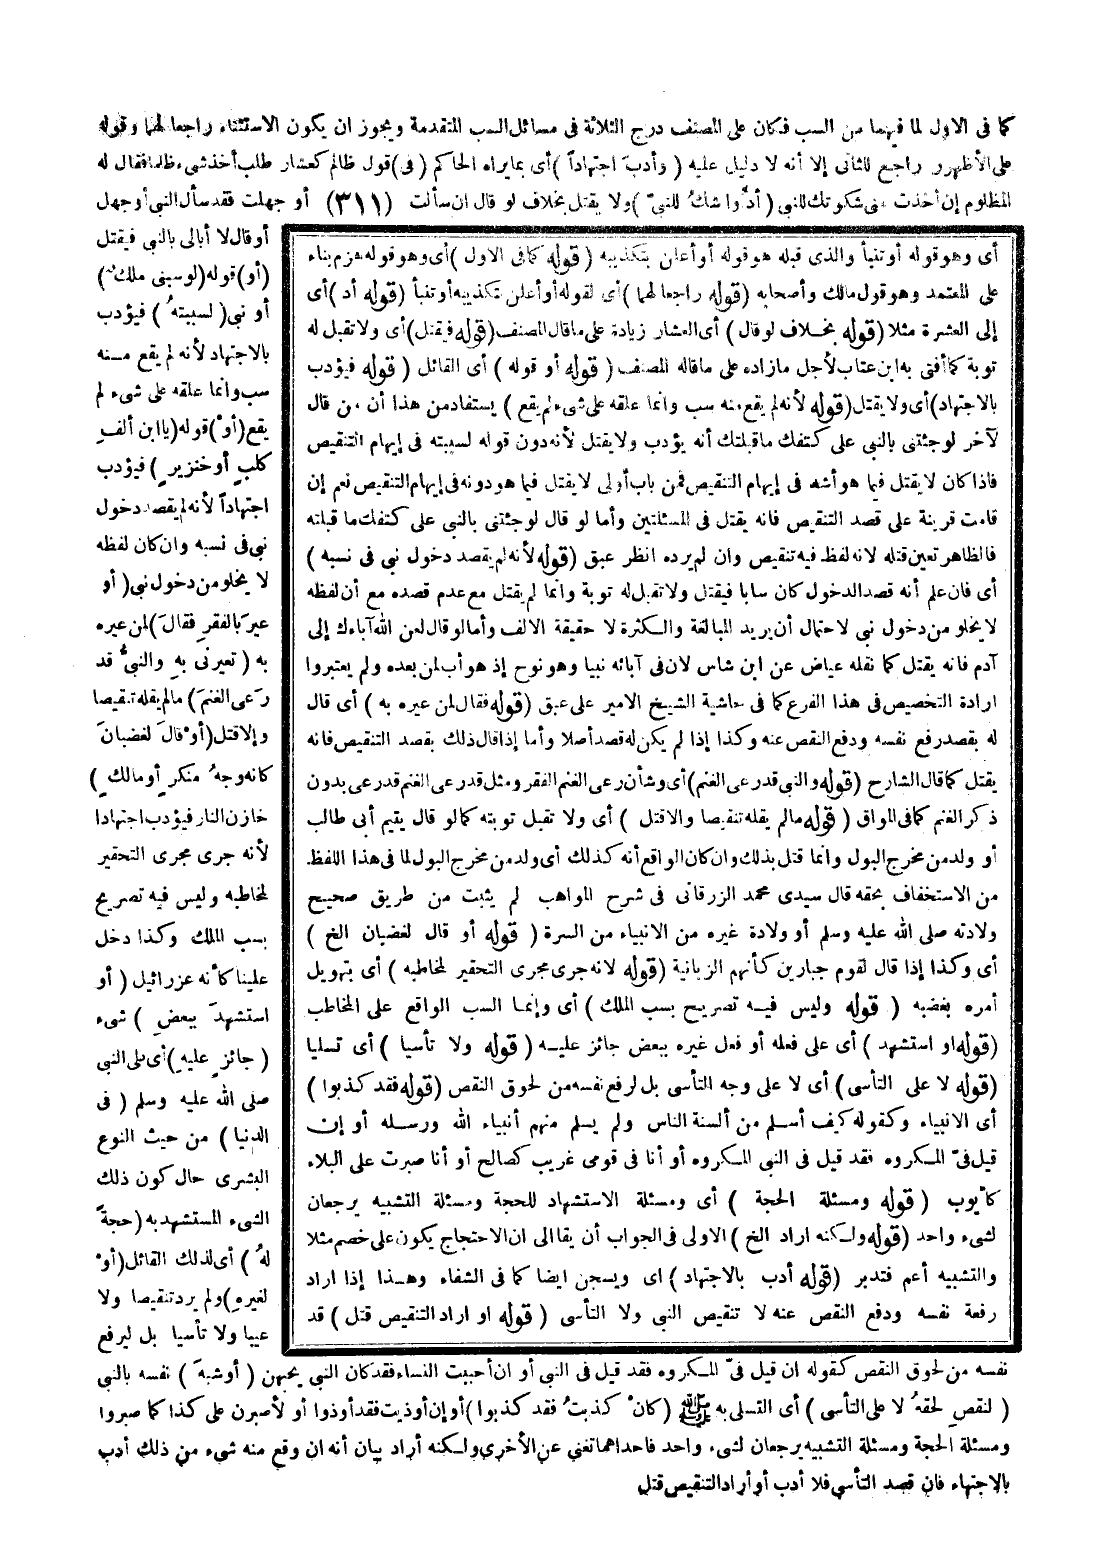 كما فى الاول لما فيهما من السب فكان على المصنف درج الثلاثة فى مسائل السب المتقدمة ويجوز ان يكون الاستثناء راجعا لهما وقوله
على الأظهر راجع للثانى إلا أنه لا دليل عليه ( وأدب اجتهاداً ) أى بما يراه الحاكم ( فى ) قول ظالم كعشار طلب أخذ شىء ظلما فقال له
المظلوم إن أخذت منى شكوتك للنبى ( أدّ واشكُ للنبىّ ) ولا يقتل بخلاف لو قال ان سألت (٣١١) أو جهلت فقد سأل النبى أوجهل
أو قال لا أبالى بالنبى فيقتل
(أو) قوله (لو سبنى ملك)
أو نبى ( لسببتهُ ) فيؤدب
بالاجتهاد لأنه لم يقع منه
سب وانما علقه على شىء لم
يقع (أو) قوله (يا ابن ألفِ
كلبٍ أو خنزيرٍ ) فيؤدب
اجتهاداً لأنه لم يقصد دخول
نبى فى نسبه وان كان لفظه
لا يخلو من دخول نبى ( أو
عيرَ بالفقرِ فقالَ ) لمن عيره
به ( تعيرنى بهِ والنبىُّ قد
رَعى الغنمَ ) ما لم يقله تنقيصا
والا قتل (أوْ قالَ لغضبانَ
كانه وجهُ منكرٍ أو مالكٍ )
خازن النار فيؤدب اجتهادا
لأنه جرى مجرى التحقير
لمخاطبه وليس فيه تصريح
بسب الملك وكذا دخل
علينا كأنه عزرائيل ( أو
استشهدَ ببعضِ ) شىء
( جائزٍ عليهِ ) أى على النبى
صلى الله عليه وسلم ( فى
الدنيا ) من حيث النوع
البشرى حال كون ذلك
الشىء المستشهد به (حجةً
لهُ ) أى لذلك القائل (أوْ
لغيرهِ) ولم يرد تنقيصا ولا
عيبا ولا تأسيا بل ليرفع
أى وهو قوله أو تنبأ والذى قبله هو قوله أو أعلن بتكذيبه ( قوله كما فى الاول ) أى وهو قوله هزم بناء
على المعتمد وهو قول مالك وأصحابه (قوله راجعا لهما) أى لقوله أو أعلن بتكذيبه أو تنبأ (قوله أد) أى
إلى العشرة مثلا (قوله بخلاف لو قال ) أى العشار زيادة على ما قال المصنف (قوله فيقتل) أى ولا تقبل له
توبة كما أفتى به ابن عتاب لأجل ما زاده على ما قاله المصنف ( قوله أو قوله ) أى القائل ( قوله فيؤدب
بالاجتهاد) أى ولا يقتل (قوله لأنه لم يقع منه سب وانما علقه على شىء لم يقع ) يستفاد من هذا أن من قال
لآخر لو جئتنى بالنبى على كتفك ما قبلتك أنه يؤدب ولا يقتل لأنه دون قوله لسببته فى إيهام التنقيص
فاذا كان لا يقتل فيما هو أشد فى إيهام التنقيص فمن باب أولى لا يقتل فيما هو دونه فى إيهام التنقيص نعم إن
قامت قرينة على قصد التنقيص فانه يقتل فى المسئلتين وأما لو قال لو جئتنى بالنبى على كتفك ما قبلته
فالظاهر تعين قتله لانه لفظ فيه تنقيص وان لم يرده انظر عبق (قوله لأنه لم يقصد دخول نبى فى نسبه )
أى فان علم أنه قصد الدخول كان سابا فيقتل ولا تقبل له توبة وانما لم يقتل مع عدم قصده مع أن لفظه
لا يخلو من دخول نبى لاحتمال أن يريد المبالغة والكثرة لا حقيقة الالف وأما لو قال لعن الله آباءك إلى
آدم فانه يقتل كما نقله عياض عن ابن شاس لان فى آبائه نبيا وهو نوح إذ هو أب لمن بعده ولم يعتبروا
ارادة التخصيص فى هذا الفرع كما فى حاشية الشيخ الامير على عبق (قوله فقال لمن عيره به ) أى قال
له بقصد رفع نفسه ودفع النقص عنه وكذا إذا لم يكن له قصد أصلا وأما إذا قال ذلك بقصد التنقيص فانه
يقتل كما قال الشارح (قوله والنبى قد رعى الغنم) أى وشأن رعى الغنم الفقر ومثل قد رعى الغنم قد رعى بدون
ذكر الغنم كما فى المواق ( قوله ما لم يقله تنقيصا والا قتل ) أى ولا تقبل توبته كما لو قال يتيم أبى طالب
أو ولد من مخرج البول وانما قتل بذلك وان كان الواقع أنه كذلك أى ولد من مخرج البول لما فى هذا اللفظ
من الاستخفاف بحقه قال سيدى محمد الزرقانى فى شرح المواهب لم يثبت من طريق صحيح
ولادته صلى الله عليه وسلم أو ولادة غيره من الانبياء من السرة ( قوله أو قال لغضبان الخ )
أى وكذا إذا قال لقوم جبارين كأنهم الزبانية (قوله لانه جرى مجرى التحقير لمخاطبه ) أى بتهويل
أمره بغضبه ( قوله وليس فيه تصريح بسب الملك ) أى وإنما السب الواقع على المخاطب
(قوله او استشهد ) أى على فعله أو فعل غيره ببعض جائز عليه ( قوله ولا تأسيا ) أى تسليا
(قوله لا على التأسى) أى لا على وجه التأسى بل لرفع نفسه من لحوق النقص (قوله فقد كذبوا )
أى الانبياء وكقوله كيف أسلم من ألسنة الناس ولم يسلم منهم أنبياء الله ورسله أو إن
قيل فىّ المكروه فقد قيل فى النبى المكروه أو أنا فى قومى غريب كصالح أو أنا صبرت على البلاء
كأيوب ( قوله ومسئلة الحجة ) أى ومسئلة الاستشهاد للحجة ومسئلة التشبيه يرجعان
لشىء واحد (قوله ولكنه اراد الخ ) الاولى فى الجواب أن يقال ان الاحتجاج يكون على خصم مثلا
والتشبيه أعم فتدبر (قوله أدب بالاجتهاد ) اى ويسجن ايضا كما فى الشفاء وهذا إذا اراد
رفعة نفسه ودفع النقص عنه لا تنقيص النبى ولا التأسى ( قوله او اراد التنقيص قتل ) قد
نفسه من لحوق النقص كقوله ان قيل فىّ المكروه فقد قيل فى النبى أو ان أحببت النساء فقد كان النبى يحبهن ( أو شبهَ ) نفسه بالنبى
( لنقصٍ لحقهُ لا على التأسى ) أى التسلى به ﷺ (كانْ كذبتُ فقد كذبوا) أو إن أوذيت فقد أوذوا أو لأصبرن على كذا كما صبروا
ومسئلة الحجة ومسئلة التشبيه يرجعان لشىء واحد فاحداهما تغنى عن الأخرى ولكنه أراد بيان أنه ان وقع منه شىء من ذلك أدب
بالاجتهاد فان قصد التأسى فلا أدب أو أراد التنقيص قتل